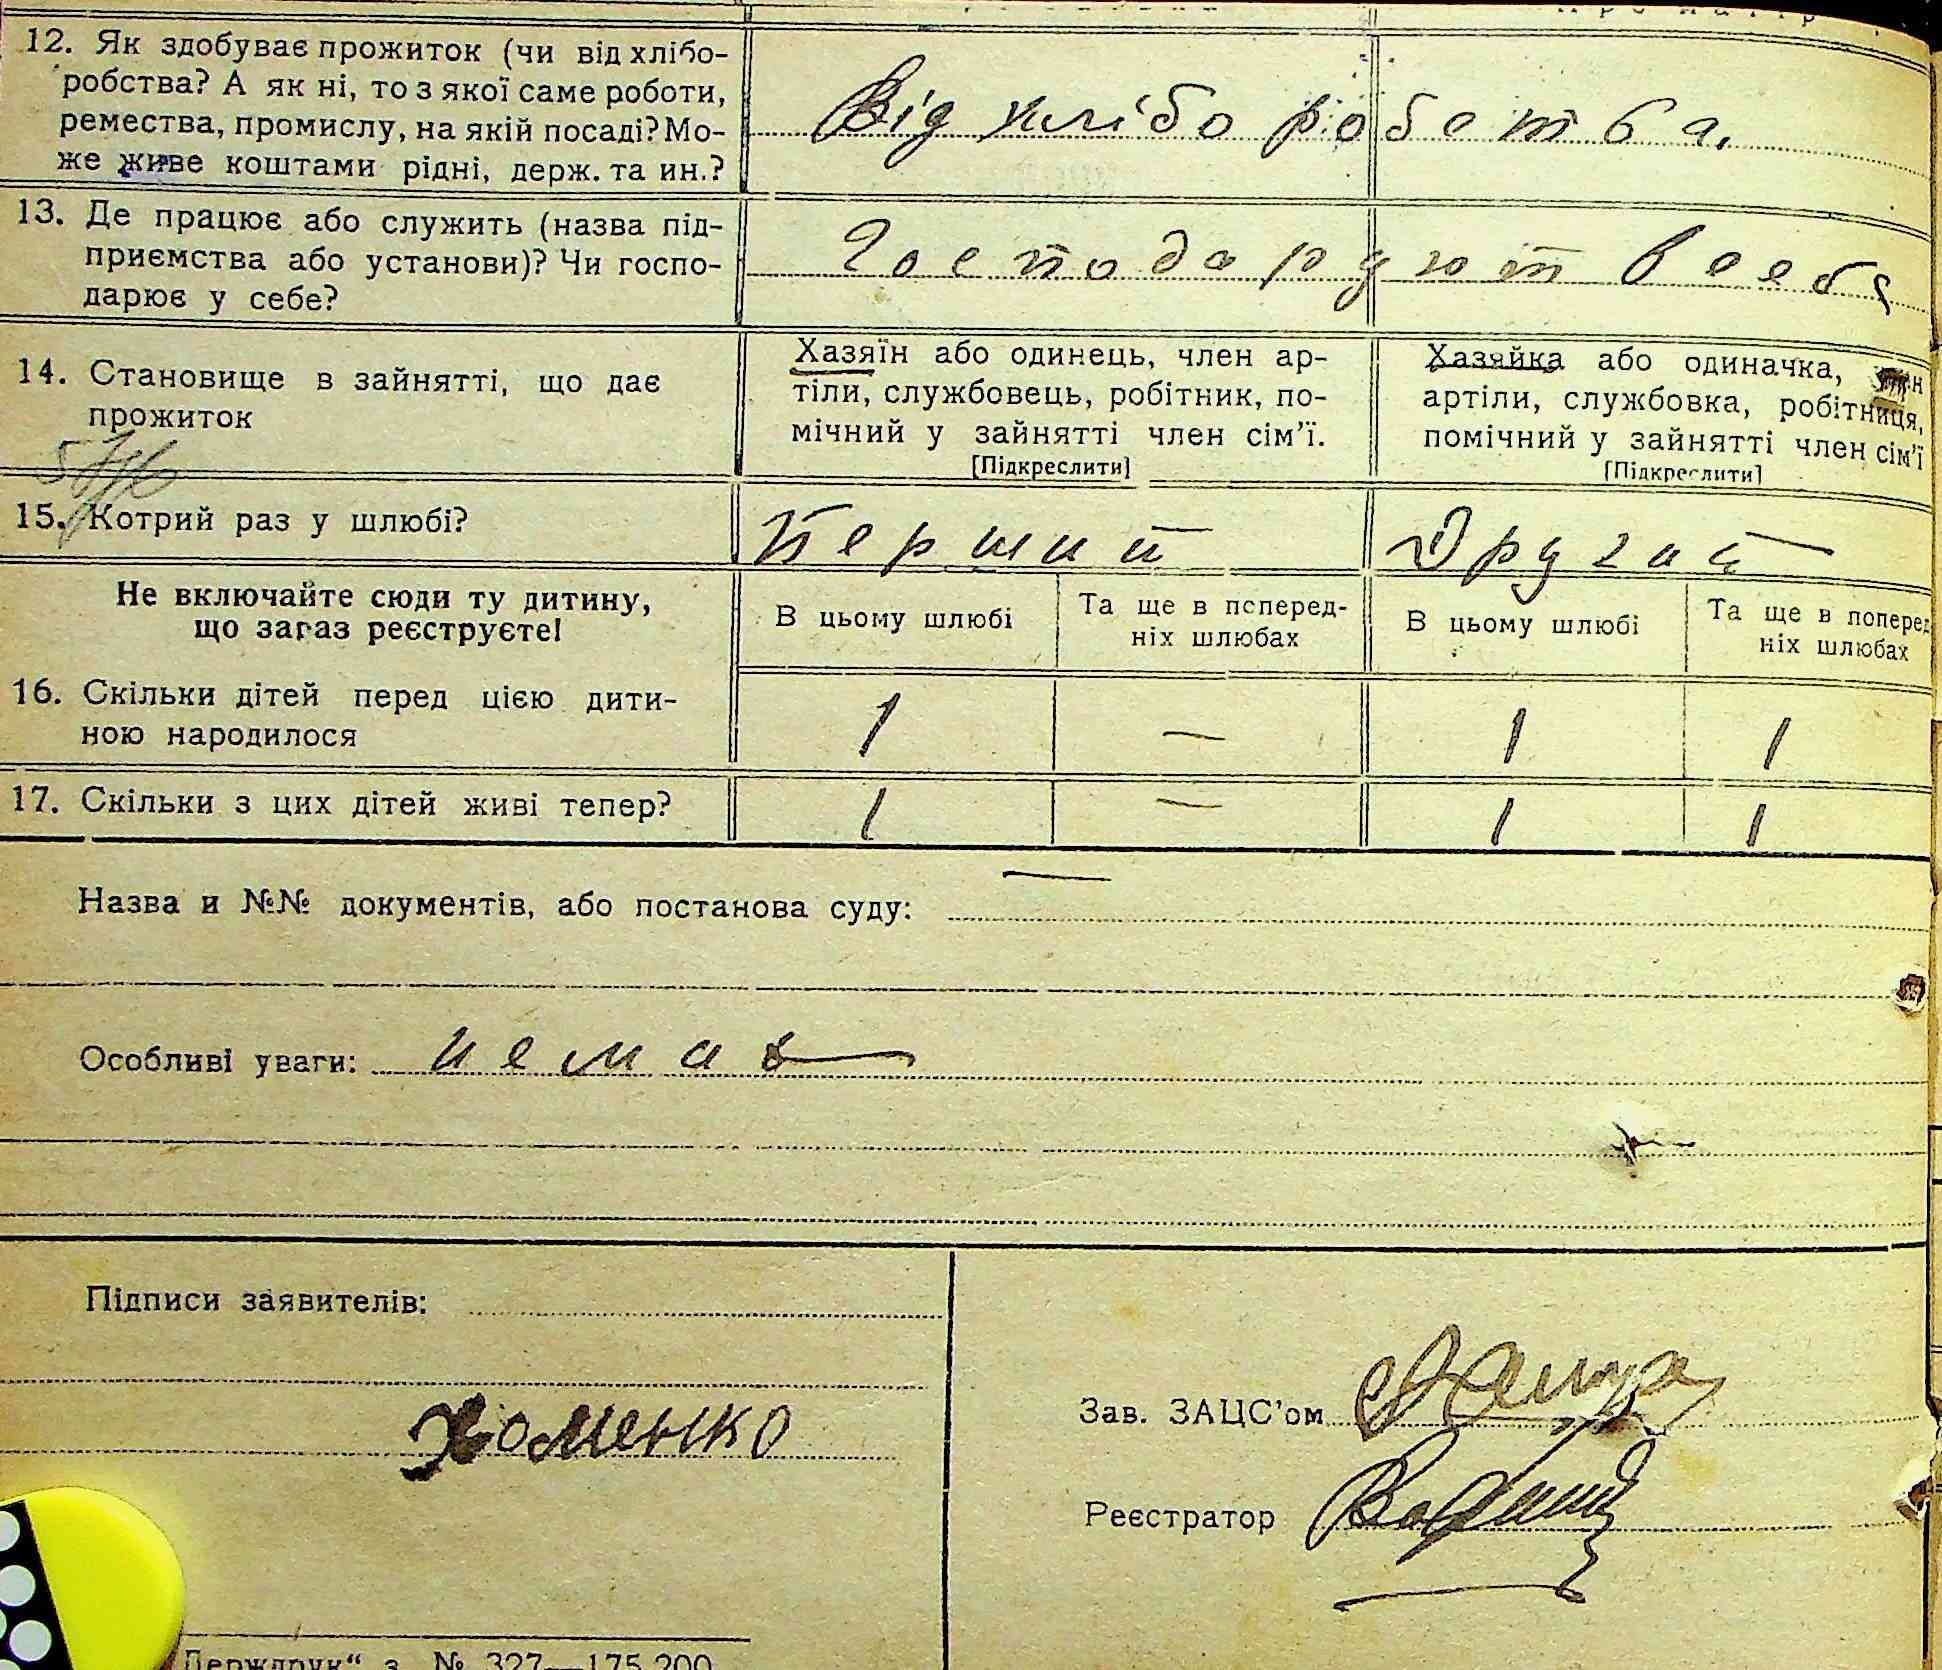 12. Як здобуває прожиток (чи від хлібо-
робства? А як ні, то з якої саме роботи,
ремества, промислу, на якій посаді? Мо-
же живе коштами рідні, держ. та ин.?
Від хліборобства,
13. Де працює або служить (назва під-
приємства або установи)? Чи госпо-
дарює у себе?
Господарюют в себе
14. Становище в зайнятті, що дає
прожиток
Хазяїн або одинець, член ар-
тіли, службовець, робітник, по-
мічний у зайнятті член сім'ї.
[Підкреслити]
Хазяйка або одиначка, член
артіли, службовка, робітниця,
помічний у зайнятті член сім'ї
[Підкреслити]
15. Котрий раз у шлюбі?
Перший
Другий
Не включайте сюди ту дитину,
що зараз реєструєте!
В цьому шлюбі
Та ще в поперед-
ніх шлюбах
В цьому шлюбі
Та ще в поперед
ніх шлюбах
16. Скільки дітей перед цією дити-
ною народилося
1 — 1 1
17. Скільки з цих дітей живі тепер?
1 — 1 1
Назва и №№ документів, або постанова суду: —
Особливі уваги: немає
Підписи заявителів:
Хоменко
Зав. ЗАЦС'ом
Реєстратор
Держдрук“ з. № 327—175.200